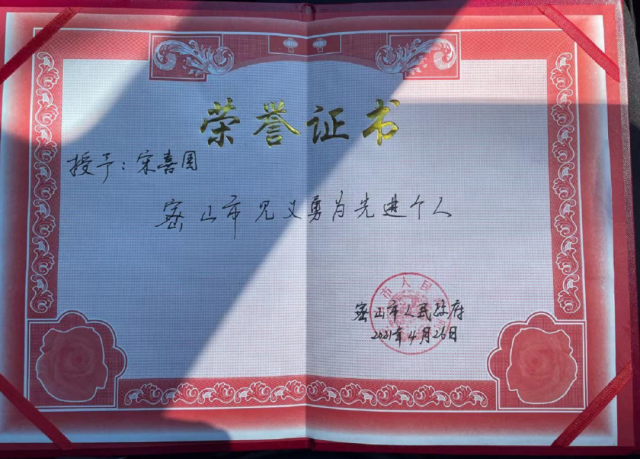 荣誉证书
授予：宋喜国
密山市见义勇为先进个人
密山市人民政府
2021年4月26日